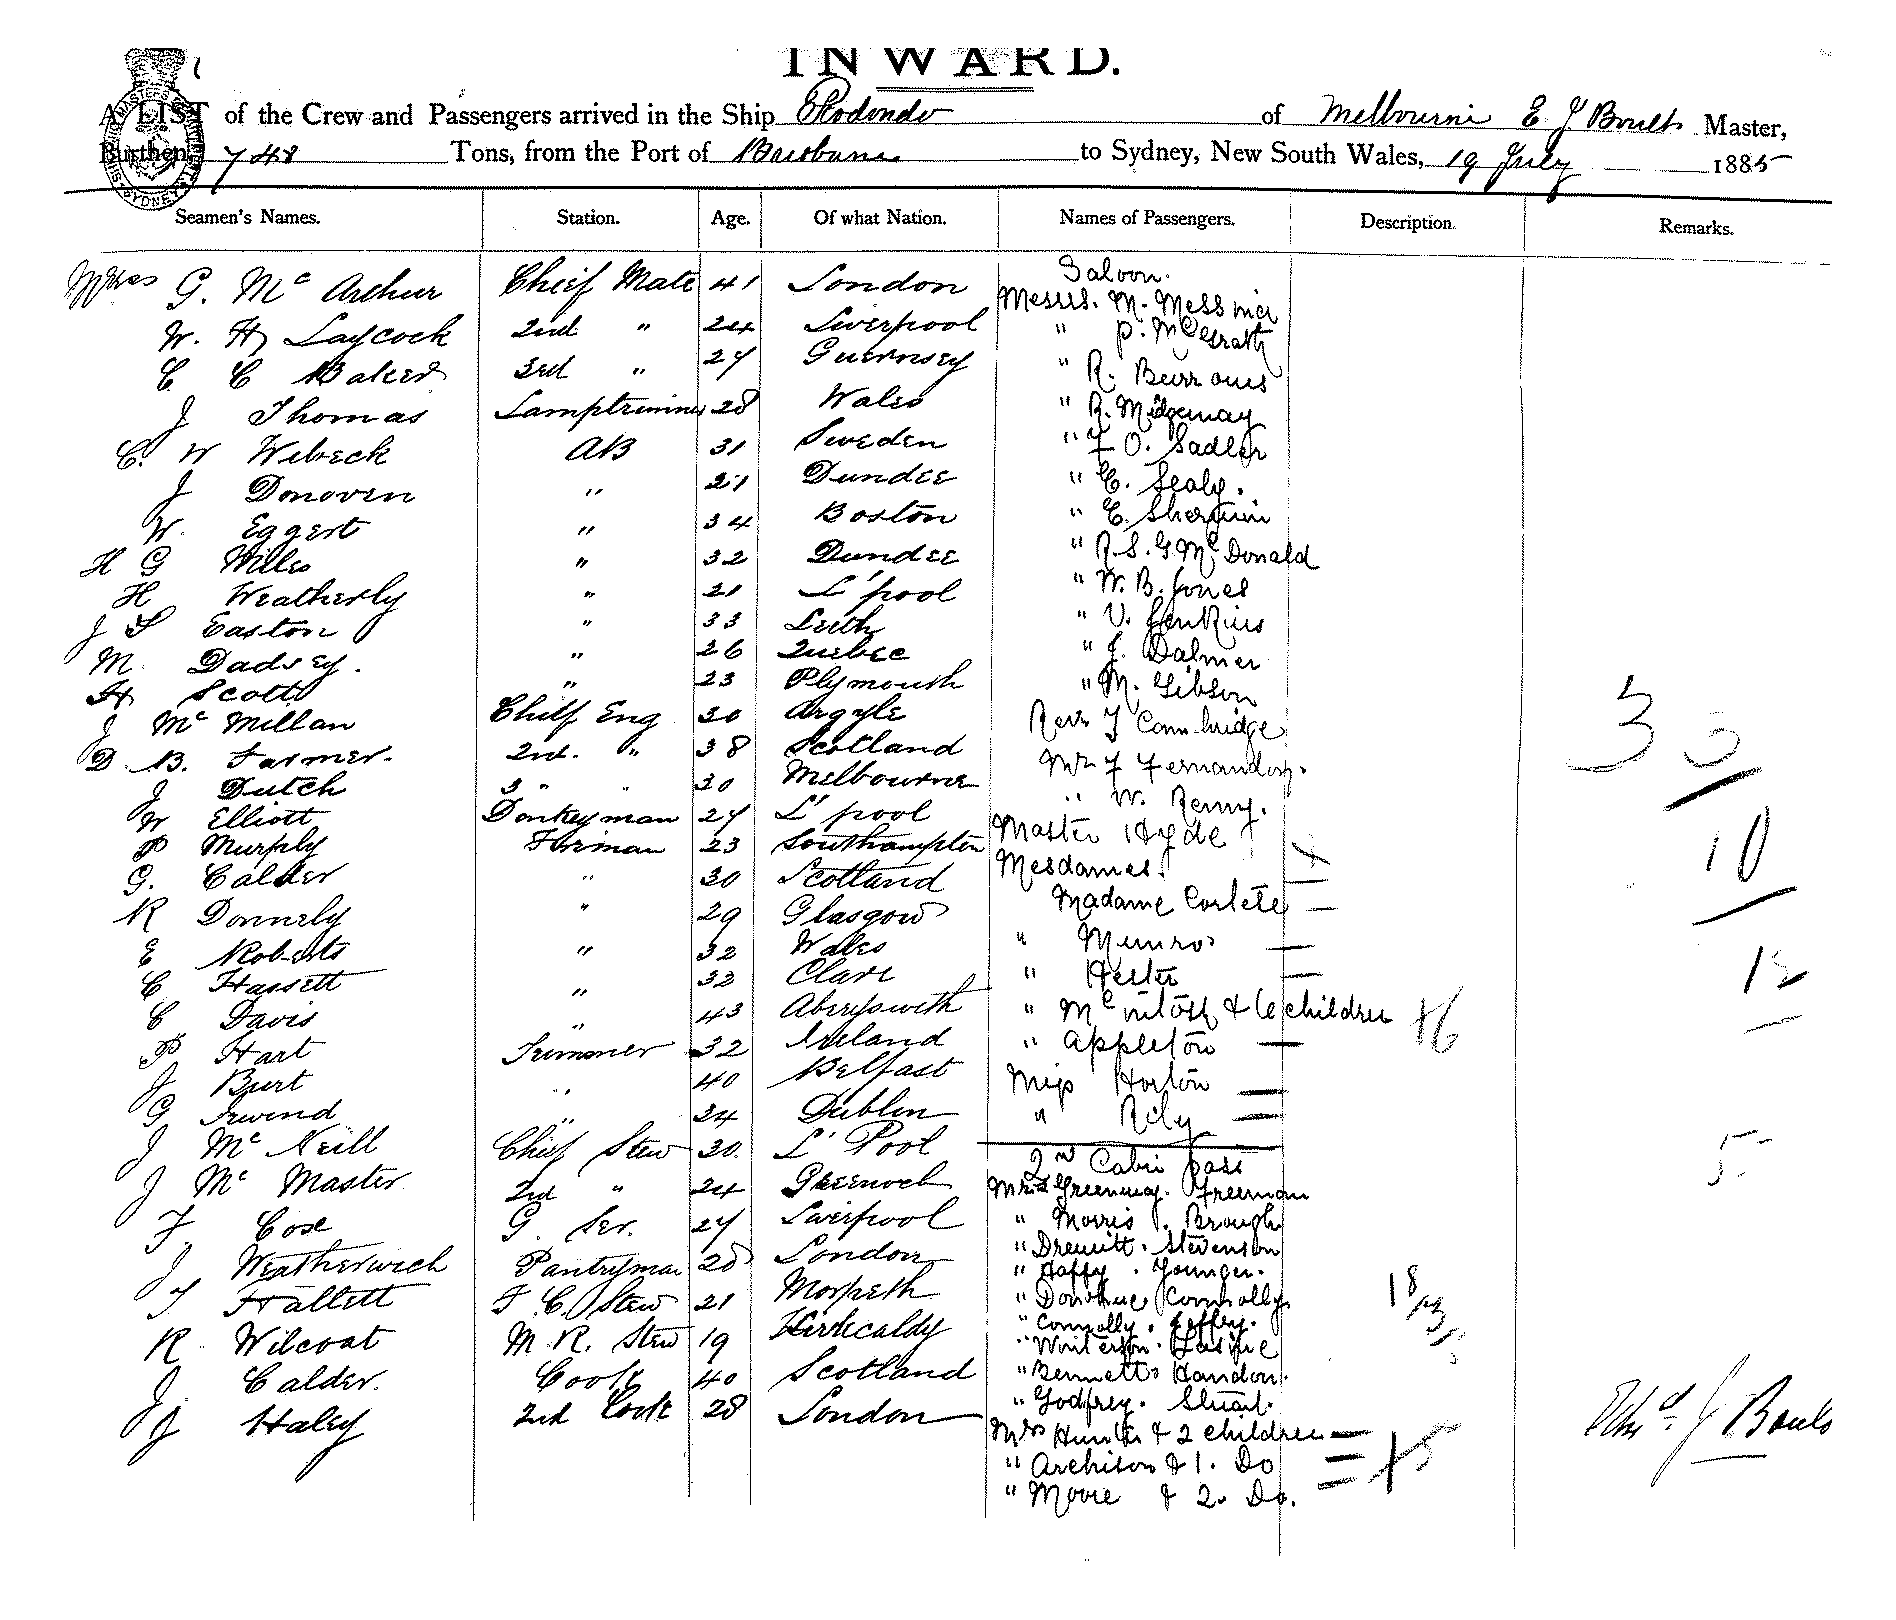 INWARD.
A LIST of the Crew and Passengers arrived in the Ship Rodondo of Melbourne E J Boult Master,
Burthen, 748 Tons, from the Port of Brisbane to Sydney, New South Wales, 19 July 1885
Seamen's Names. Station. Age. Of what Nation. Names of Passengers. Description. Remarks.
G. Mc Arthur Chief Mate 41 London
W. H Laycock 2nd " 24 Liverpool
C C Baker 3rd " 27 Guernsey
J Thomas Lamptrimmer 28 Wales
C. W Webeck AB 31 Sweden
J Donoven " 21 Dundee
W. Eggert " 34 Boston
H G Willes " 32 Dundee
H Weatherly " 21 L'pool
J S Easton " 33 Leith
M. Dadsey. " 26 Quebec
H Scott " 23 Plymouth
J Mc Millan Chief Eng 30 Argyle
D. B. Farmer. 2nd. " 38 Scotland
J Dutch 3 " " 30 Melbourne
W Elliott Donkeyman 27 L'pool
P Murphy Fireman 23 Southampton
G. Calder " 30 Scotland
R Donnely " 29 Glasgow
E Roberts " 32 Wales
C Hassett " 32 Clare
C Davis " 43 Aberyswith
P Hart Trimmer 32 Ireland
J Burt " 40 Belfast
G Irwind " 24 Dublin
J Mc Neill Chief Stew 30. L'Pool
J Mc Master 2nd " 24 Greenock
F. Cose G. Ser. 27 Liverpool
J Weatherwich Pantryman 28 London
T Hallett F C. Stew 21 Morpeth
R Wilcoat M. R. Stew 19 Kirkcaldy
J Calder. Cook 40 Scotland
J Haley 2nd Cook 28 London
Saloon.
Messrs. M. Messmer
" P. McGrath
" R. Burrows
" R. Midgeway
" F O. Sadler
" C. Sealy.
" C. Sherwin
" R. S. G. Mc Donald
" W. B. Jones
" V. Jenkins
" J. Dalmer
" M. Gibson
Revr J Cambridge
Mr F Fernandoy.
" W. Renny.
Master Hyde
Mesdames.
Madame Cortete
" Munro
" Hester
" Mc intosh & 6 children +6
" Appleton
Miss Horton
" Rily
2nd Cabin pass
Mrs Greenway. Freeman
" Morris. Brough
" Drewitt. Stevenson
" Haffy. Younger.
" Donohue Connolly.
" Connolly. Jeffery.
" Winterson.
" Bennett. Handon.
" Godfrey. Stuart.
Mrs Hunter & 2 children
" Archison & 1. Do +5
" Moore & 2. Do.
30
10
12
5
18
J Boult